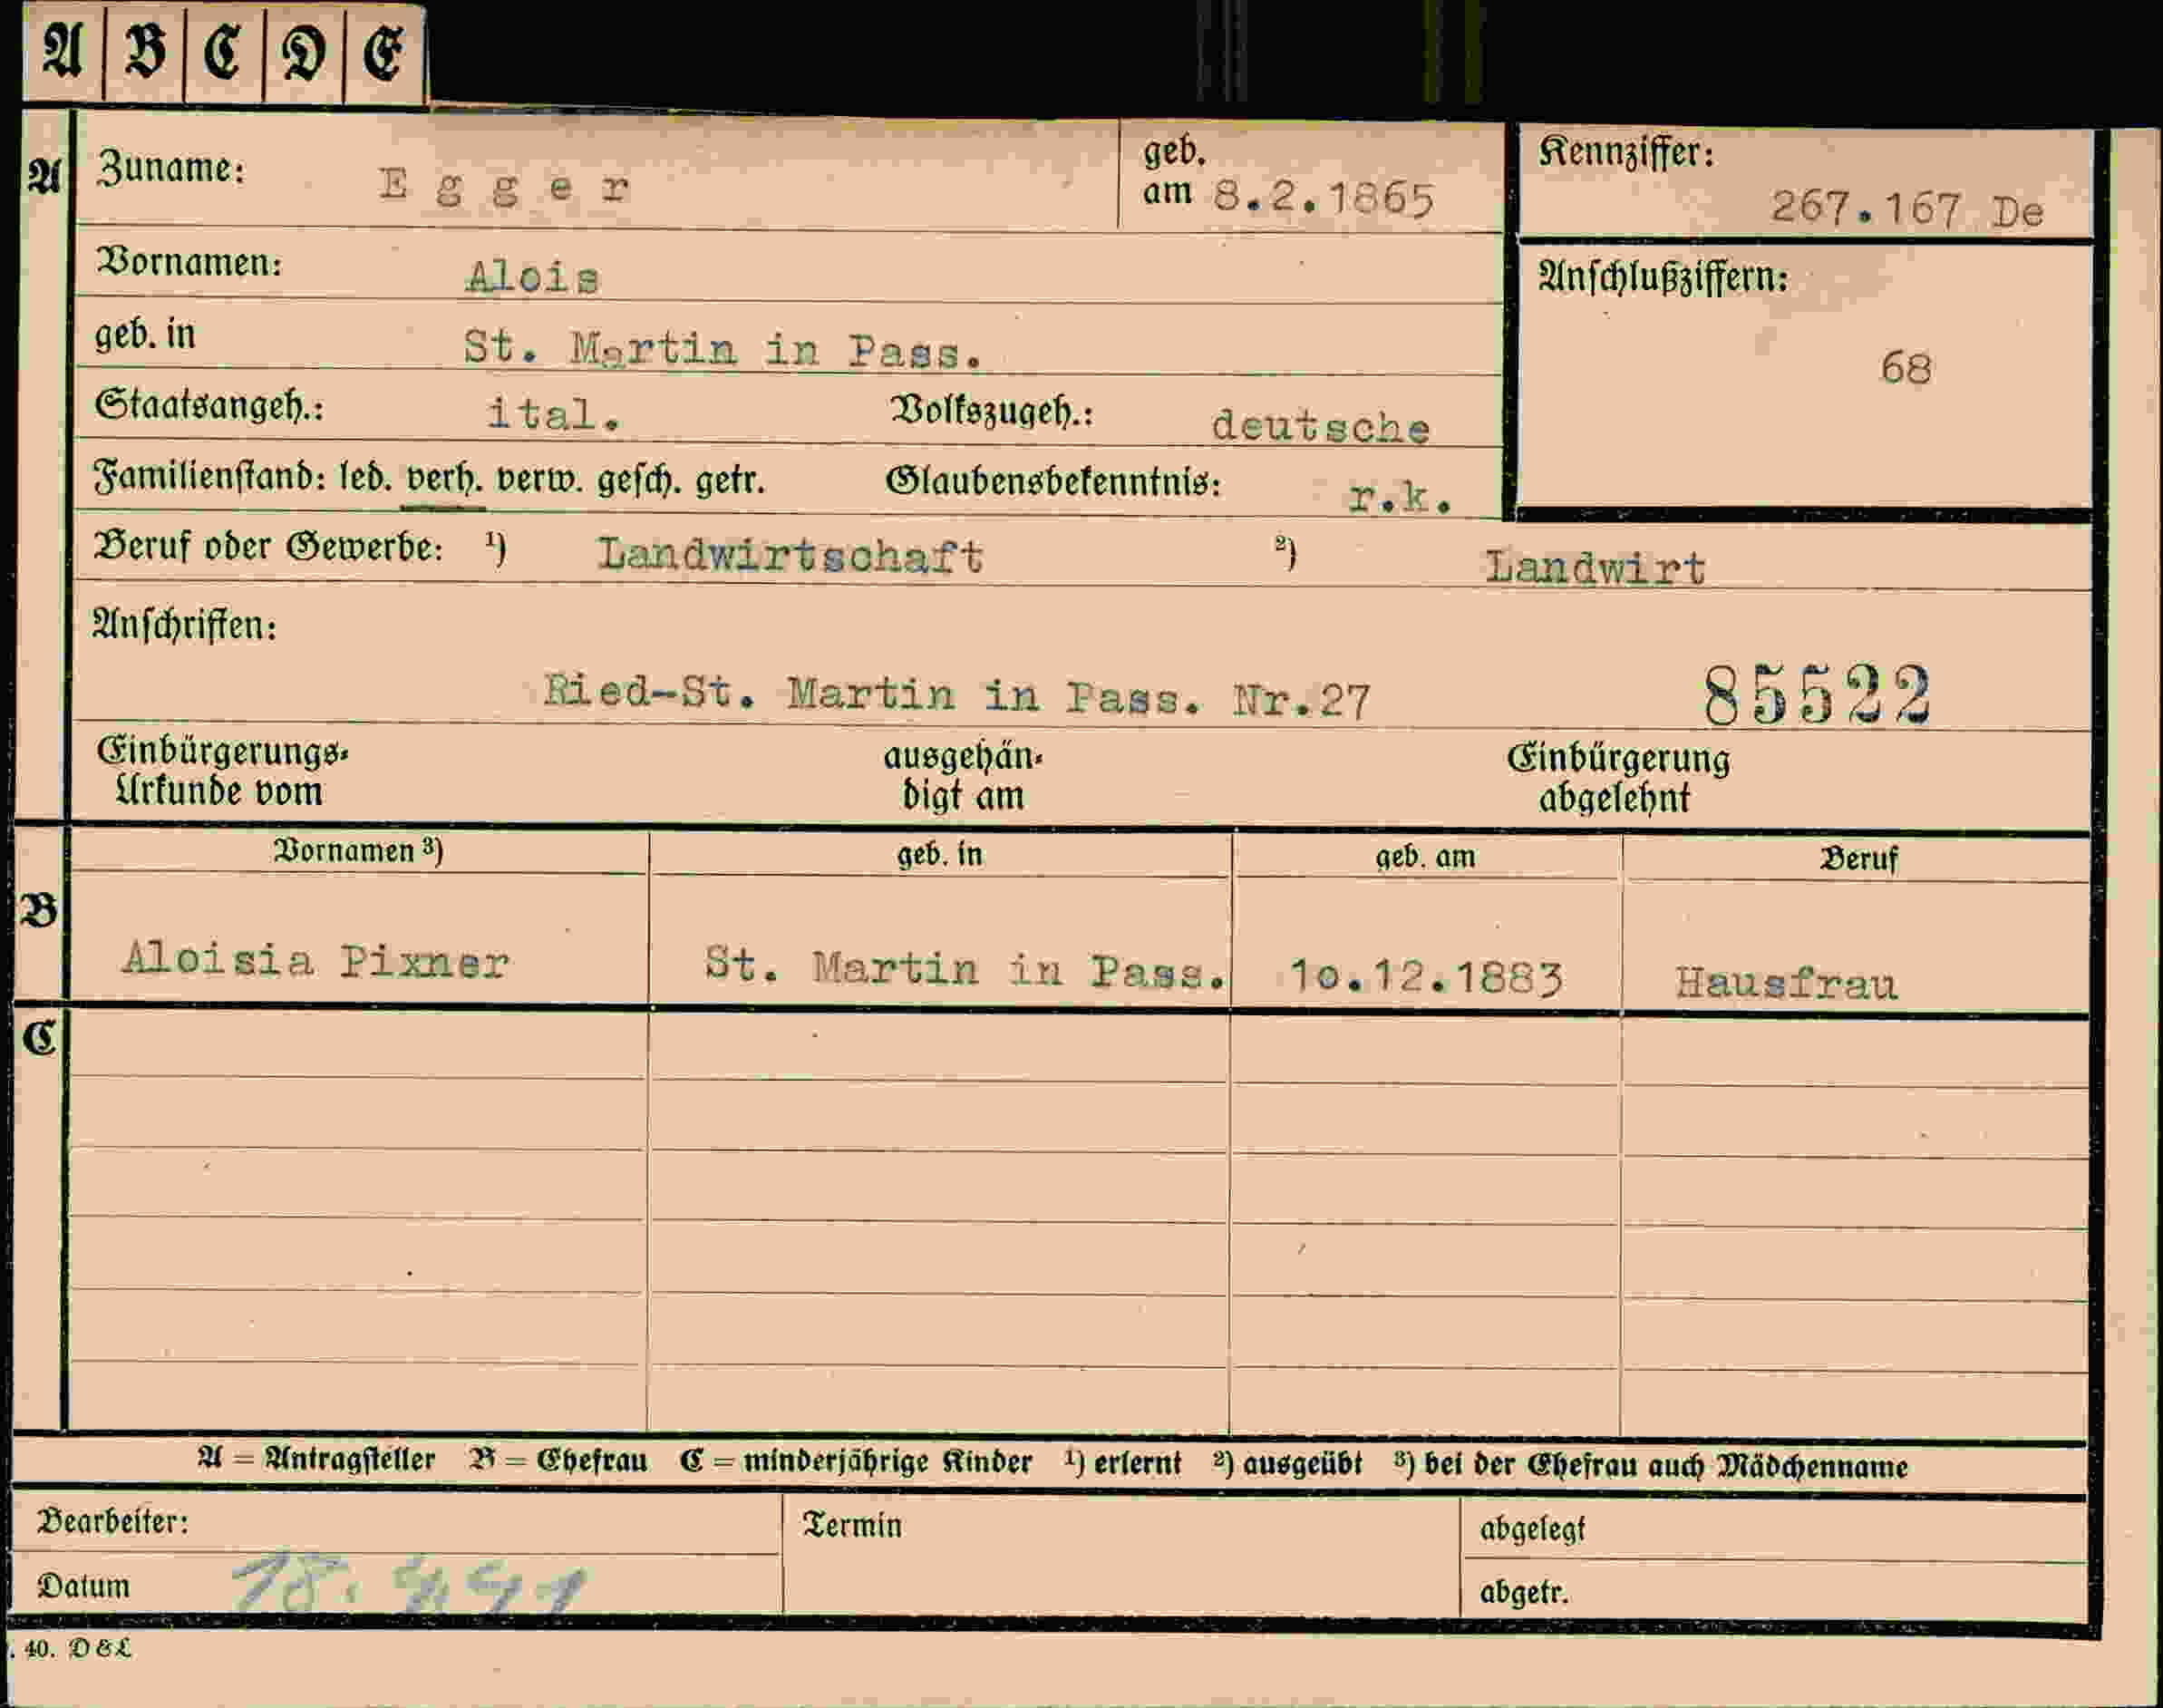 A B C D E
A Zuname: Egger geb. am 8.2.1865 Kennziffer: 267.167 De
Vornamen: Alois Anschlußziffern: 68
geb. in St. Martin in Pass.
Staatsangeh.: ital. Volkszugeh.: deutsche
Familienstand: led. verh. verw. gesch. getr. Glaubensbekenntnis: r.k.
Beruf oder Gewerbe: ¹) Landwirtschaft ²) Landwirt
Anschriften:
Ried-St. Martin in Pass. Nr.27 85522
Einbürgerungs- ausgehän- Einbürgerung
Urkunde vom digt am abgelehnt
Vornamen ³) geb. in geb. am Beruf
B
Aloisia Pixner St. Martin in Pass. 10.12.1883 Hausfrau
C
A = Antragsteller B = Ehefrau C = minderjährige Kinder ¹) erlernt ²) ausgeübt ³) bei der Ehefrau auch Mädchenname
Bearbeiter: Termin abgelegt
Datum 18. abgetr.
40. D&L